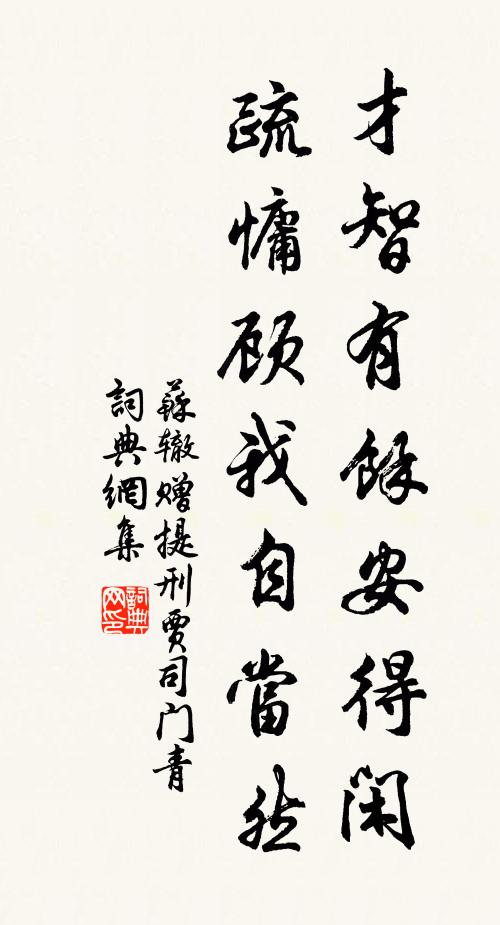 才智有餘安得閑
疏慵顧我自當然
蘇辙贈提刑賈司门青
詞典網集
詞典网印